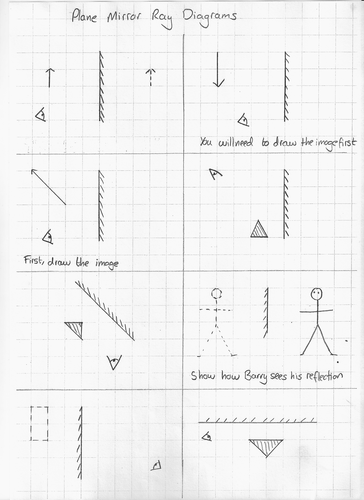 Plane Mirror Ray Diagrams
You will need to draw the image first
First, draw the image
Show how Barry sees his reflection